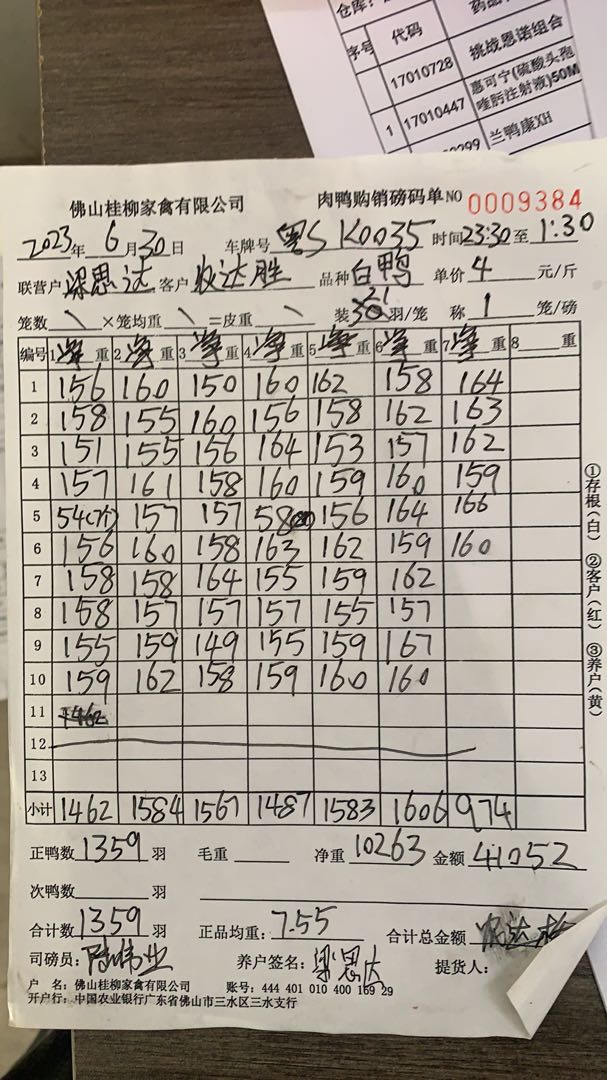 仓库:
序号 代码 药品
17010728 挑战恩诺组合
1 17010447 惠可宁(硫酸头孢喹肟注射液)50M
0299 兰鸭康XH
佛山桂柳家禽有限公司 肉鸭购销磅码单 NO 0009384
2023年 6月30日 车牌号 粤S K0035 时间 23:30 至 1:30
联营户 梁思达 客户 达胜 品种 白鸭 单价 4 元/斤
笼数 \ ×笼均重 \ =皮重 \ 装 21 羽/笼 称 1 笼/磅
编号 1净重 2净重 3净重 4净重 5净重 6净重 7净重 8 重
1 156 160 150 160 162 158 164
2 158 155 160 156 158 162 163
3 151 155 156 164 153 157 162
4 157 161 158 160 159 160 159
5 54(7个) 157 157 58 156 164 166
6 156 160 158 163 162 159 160
7 158 158 164 155 159 162
8 158 157 157 157 155 157
9 155 159 149 155 159 167
10 159 162 158 159 160 160
11
12
13
小计 1462 1584 1567 1487 1583 1606 974
①存根(白) ②客户(红) ③养户(黄)
正鸭数 1359 羽 毛重 净重 10263 金额 41052
次鸭数 羽
合计数 1359 羽 正品均重: 7.55 合计总金额
司磅员: 陈伟业 养户签名: 梁思达 提货人:
户 名: 佛山桂柳家禽有限公司 账号: 444 401 010 400 169 29
开户行: 中国农业银行广东省佛山市三水区三水支行